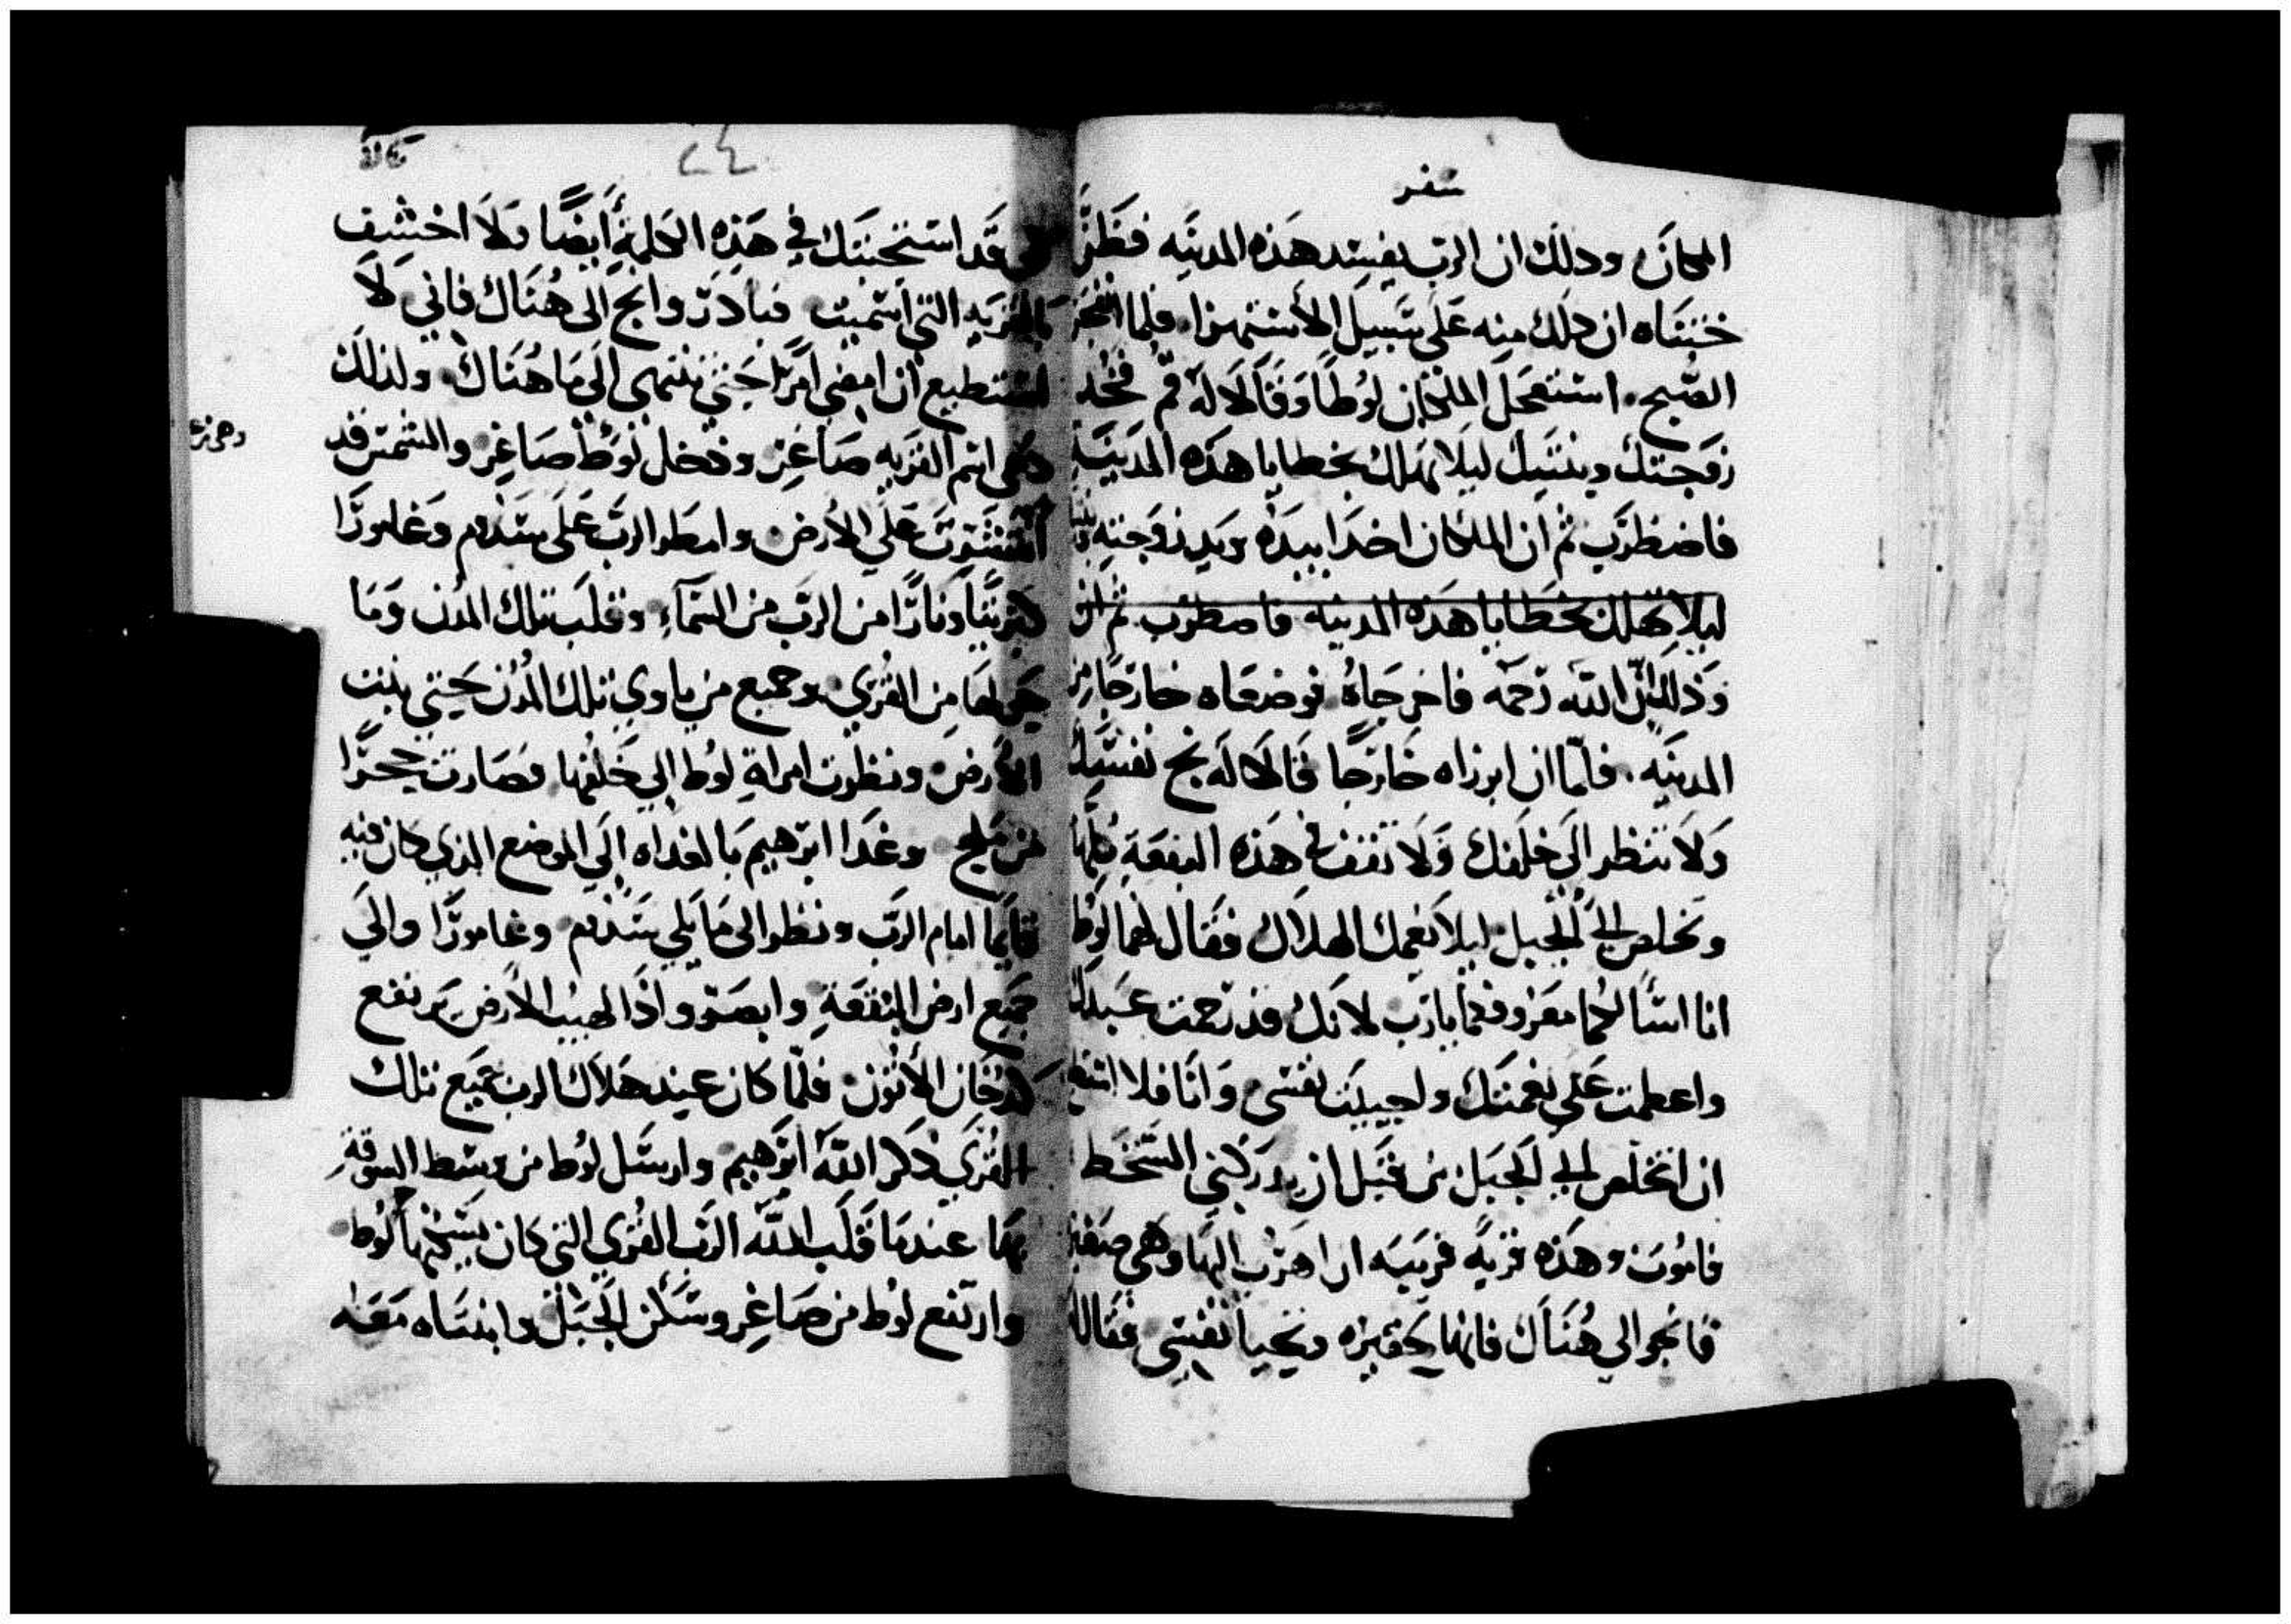 سفر
المكان وذلك ان الرب يفسد هذه المدينه فظن
ختناه ان ذلك منه على سبيل الاستهزا. فلما انفجر
الصبح. استعجل الملكان لوطًا وَقَالَا له قم فخُذ
زوجتك وبنتيك ليلا تهلك بخطايا هذه المدينه
فاضطرَب ثم ان الملكان اخذا بيده ويد زوجته
ليلا تهلك بخطايا هذه المدينه فاضطرب ثم ان
وَذلك لان الله رَحمَه فاخرجَاهُ فوضعَاه خارجًا من
المدينه. فلمّا ان ابرزاه خَارجًا قَالَا له نج نفسَك
وَلَا تنظر الى خلفك وَلَا تقف في هَذه البقعَة كلهَا
وتخلص الى الجبل ليلا يعمك الهلاك فقال لهما لوط
انا اسَّالكما معَروفكما يارَب لانك قد رحمت عَبدك
واعظمت عَلي نعمتك واحييت نفسى وَانَا فلا استطع
ان اتخلص الى الجبَل من قبَل ان يدركني السَّخط
فاموت وهَذه قريةً قريبَه ان اهرُب اليهَا وهي صغيره
فانجو الي هُنَاك فانها حقيره وتحيا نفسِى فقال له
٢٤
قَد استحننتك في هَذِه الكلمةِ ايضًا ولَا اخسِف
بالقريَه التي اسَميت فبادَر وانج الى هُنَاك فاني لَا
استطيع ان امضي امرًا حَتى تنتهى الَى مَا هُنَاك. ولذلك
دعى اسم القريه صَاغِر. ودخل لوطُ صَاغِر والشمس قد
انتشرت عَلى الارض. وامطر الربَ عَلَى سَدُم وَعامورَّا
كبريتًا ونارًا من الربّ من السمَآء. وقلَب تلك المدن وَمَا
حَولهَا من القُري. وجميع من ياوي تلك المُدن حَتي نبت
الارض. ونظرت امراةِ لوُط الي خَلفها فصَارت حجرًا
من ملح وغَدَا ابرهيم بَالغداه الَي الموضع الذي كان فيه
قايمًا امام الرَّب ونظر الى مَا يَلي سَدُم وغامورَّا والَي
جَميع ارض البقعَةِ وابصَر واذَا لهيبُ الارضِ يَرتفع
كدخَان الاتون. فلمّا كان عِند هَلاَك الرب جَميع تلك
القُرَي ذكر اللهَ ابرَهيم وارسَل لوُط من وسط السوقةِ
بهَا عندمَا قَلَب اللهَ الرَب القُرَي التي كان يَسكنهَا لُوط
وارتفع لوُط من صَاغِر وسَكن الجَبَل وابنتَاه مَعَه